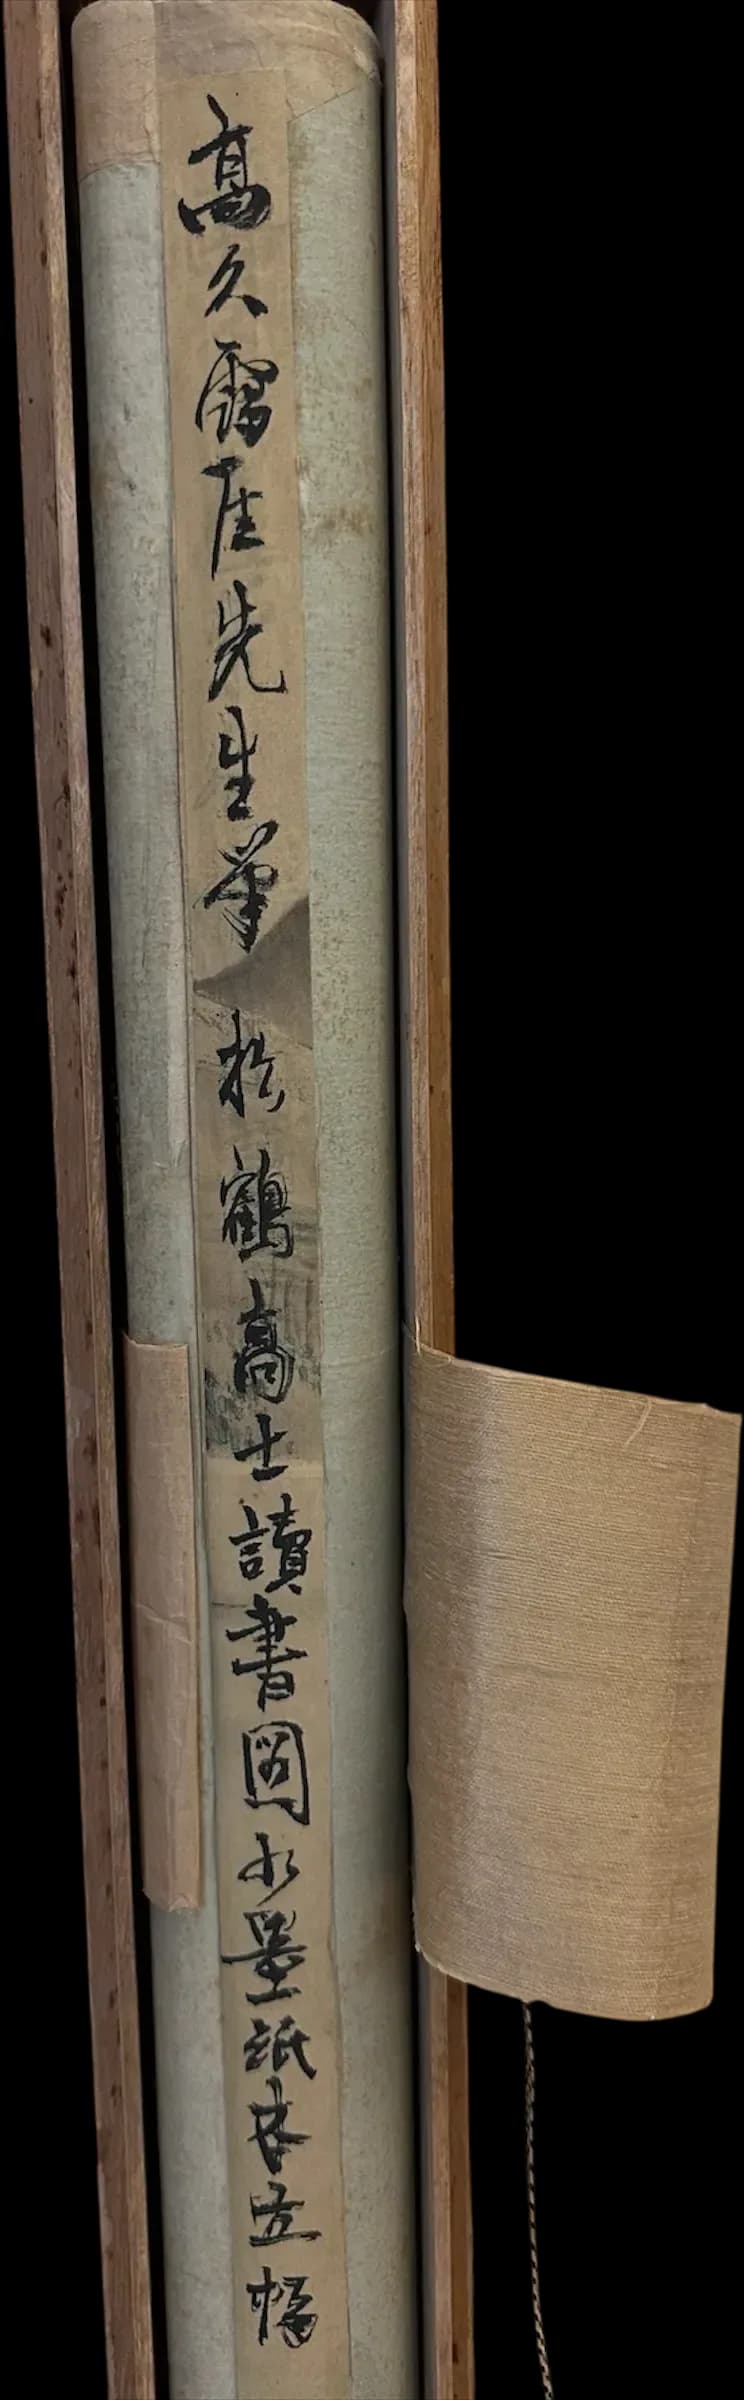 高久靄厓先生筆松鶴高士讀書圖水墨紙本立幅